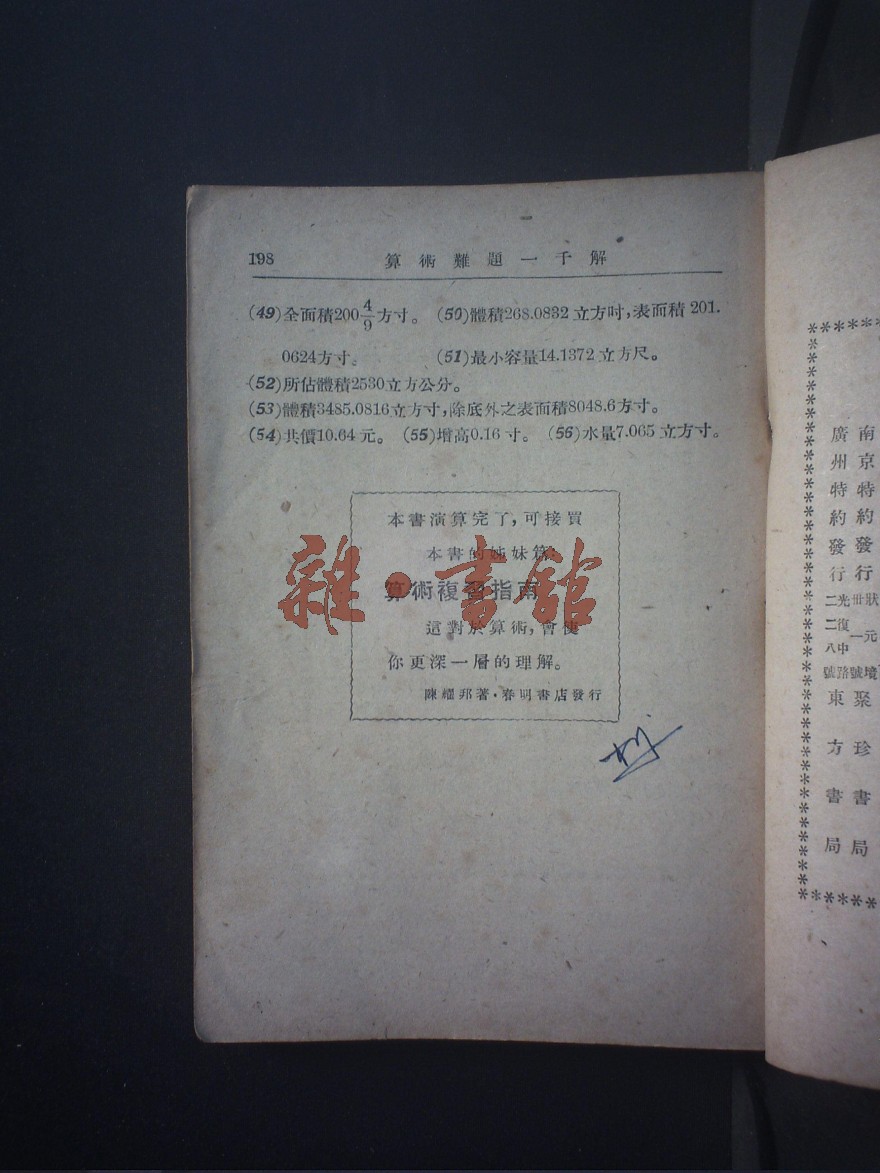 198
算術難題一千解
(49)全面積200 4/9 方寸。 (50)體積268.0832立方吋,表面積201.
0624方寸。 (51)最小容量14.1372立方尺。
(52)所佔體積2530立方公分。
(53)體積3485.0816立方寸,除底外之表面積8048.6方寸。
(54)共價10.64元。 (55)增高0.16寸。 (56)水量7.065立方寸。
本書演算完了,可接買
本書的姊妹篇:
算術複習指南
這對於算術,會使
你更深一層的理解。
陳耀邦著·春明書店發行
雜·書館
南京特約發行 狀元境 聚珍書局
廣州特約發行 光復中路 二二八號 東方書局